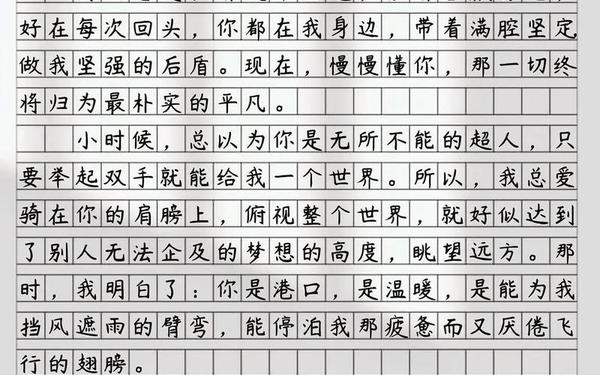 好在每次回头，你都在我身边，带着满腔坚定
做我坚强的后盾。现在，慢慢懂你，那一切终
将归为最朴实的平凡。
小时候，总以为你是无所不能的超人，只
要举起双手就能给我一个世界。所以，我总爱
骑在你的肩膀上，俯视整个世界，就好似达到
了别人无法企及的梦想的高度，眺望远方。那
时，我明白了：你是港口，是温暖，是能为我
挡风遮雨的臂弯，能停泊我那疲惫而又厌倦飞
行的翅膀。